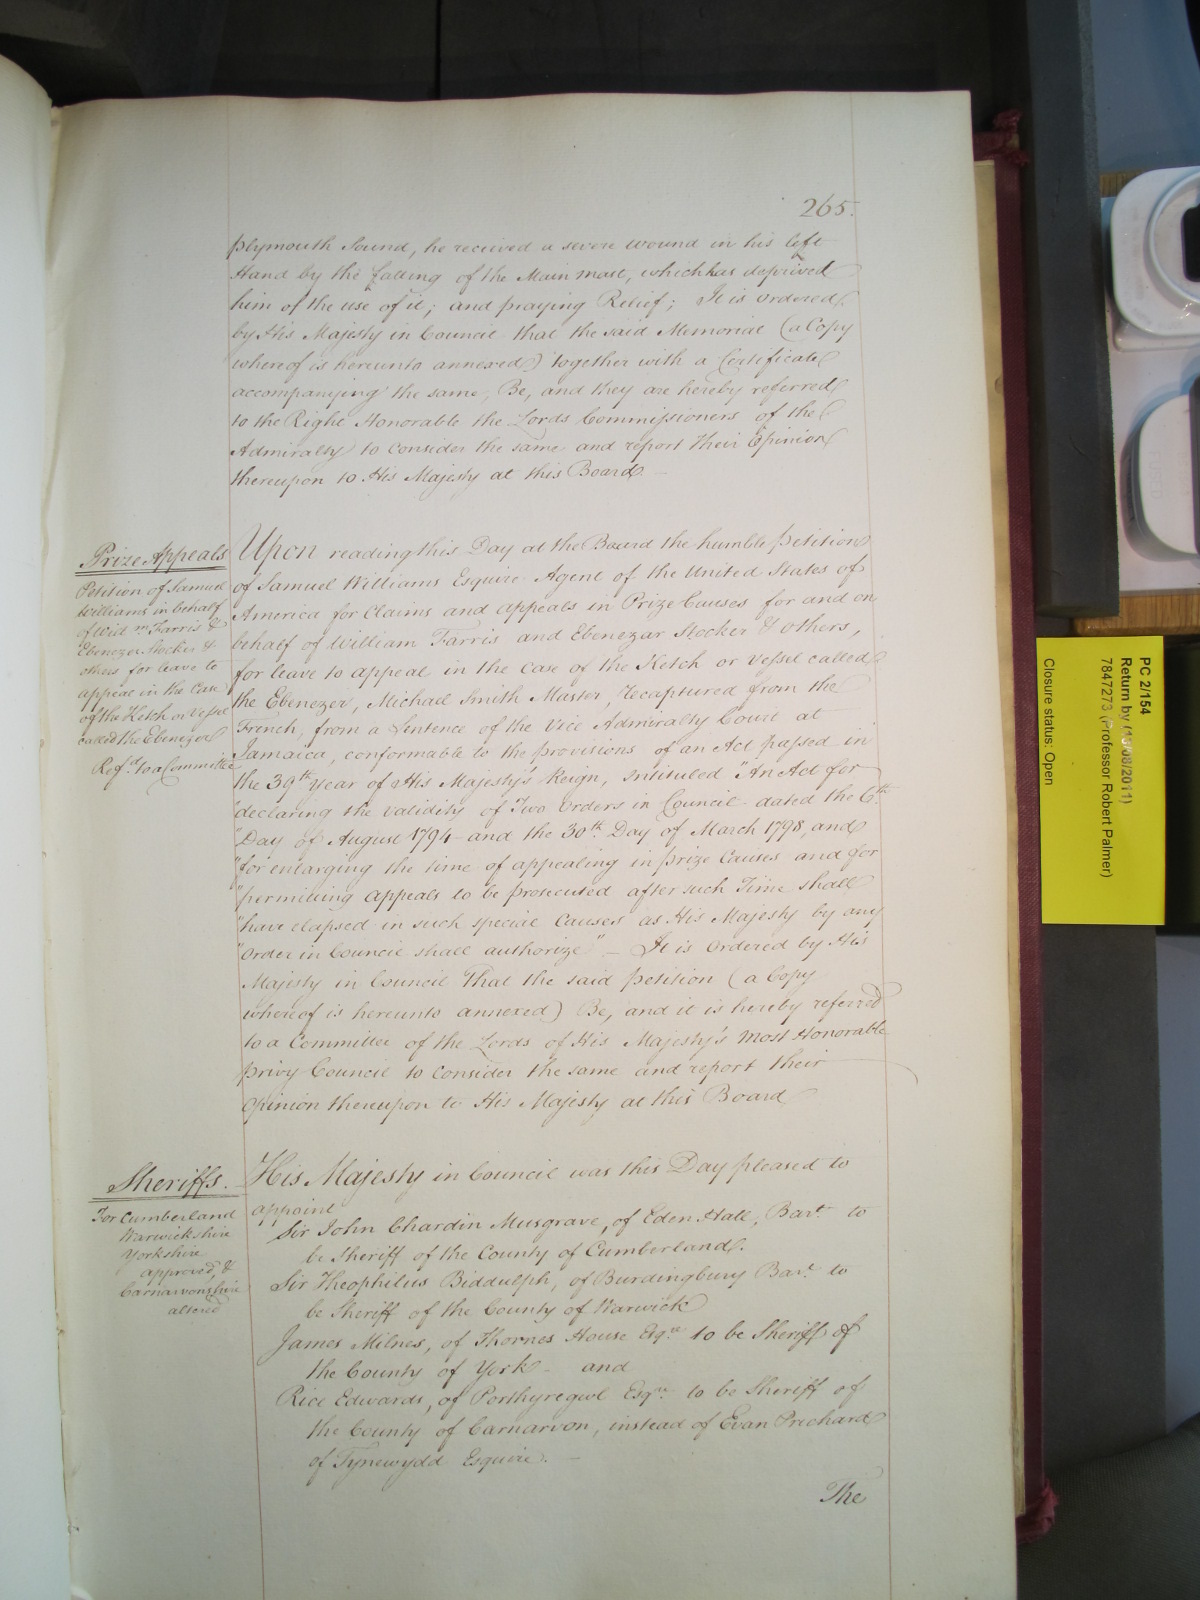 265.
Plymouth Sound, he recieved a severe wound in his left
Hand by the falling of the Main mast, which has deprived
him of the use of it; and praying Relief; It is ordered
by His Majesty in Council that the said Memorial (a Copy
whereof is hereunto annexed) together with a Certificate
accompanying the same, Be, and they are hereby referred
to the Right Honorable the Lords Commissioners of the
Admiralty to consider the same and report their Opinion
thereupon to His Majesty at this Board —
Prize Appeals
Petition of Samuel
Williams in behalf
of Will.m Farris &
Ebenezer Stocker &
others for leave to
appeal in the Case
of the Ketch or Vessel
called the Ebenezer
Ref.d to a Committee
Upon reading this Day at the Board the humble Petition
of Samuel Williams Esquire Agent of the United States of
America for Claims and appeals in Prize Causes for and on
behalf of William Farris and Ebenezar Stocker & others,
for leave to appeal in the Case of the Ketch or Vessel called
the Ebenezer, Michael Smith Master, recaptured from the
French, from a Sentence of the Vice Admiralty Court at
Jamaica, conformable to the provisions of an Act passed in
the 39th Year of His Majesty's Reign, intituled "An Act for
"declaring the validity of Two Orders in Council dated the 6th
"Day of August 1794 and the 30th Day of March 1798, and
"for enlarging the time of appealing in Prize Causes and for
"permitting Appeals to be prosecuted after such Time shall
"have elapsed in such special Causes as His Majesty by any
"Order in Council shall authorize" — It is Ordered by His
Majesty in Council That the said Petition (a Copy
whereof is hereunto annexed) Be, and it is hereby referred
to a Committee of the Lords of His Majesty's most Honorable
Privy Council to consider the same and report their
Opinion thereupon to His Majesty at this Board
Sheriffs.
For Cumberland
Warwickshire
Yorkshire
approved, &
Carnarvonshire
altered
His Majesty in Council was this Day pleased to
appoint
Sir John Chardin Musgrave, of Eden Hall, Bart. to
be Sheriff of the County of Cumberland.
Sir Theophilus Biddulph, of Burdingbury Bart. to
be Sheriff of the County of Warwick
James Milnes, of Thornes House Esqre to be Sheriff of
the County of York — and
Rice Edwards, of Porthyregwl Esqre to be Sheriff of
the County of Carnarvon, instead of Evan Prichard
of Tynewydd Esquire. —
The
PC 2/154
Return by (13/08/2011)
7847273 (Professor Robert Palmer)
Closure status: Open